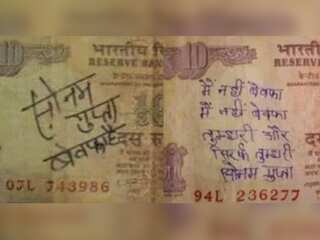 10 भारतीय
RESERVE BANK
सोनम
गुप्ता
बेवफा है
07L 743986
10 भारतीय रि
RESERVE BAN
मैं नहीं बेवफा
मैं नहीं बेवफा
तुम्हारी और
सिर्फ तुम्हारी
सोनम गुप्ता
94L 236277